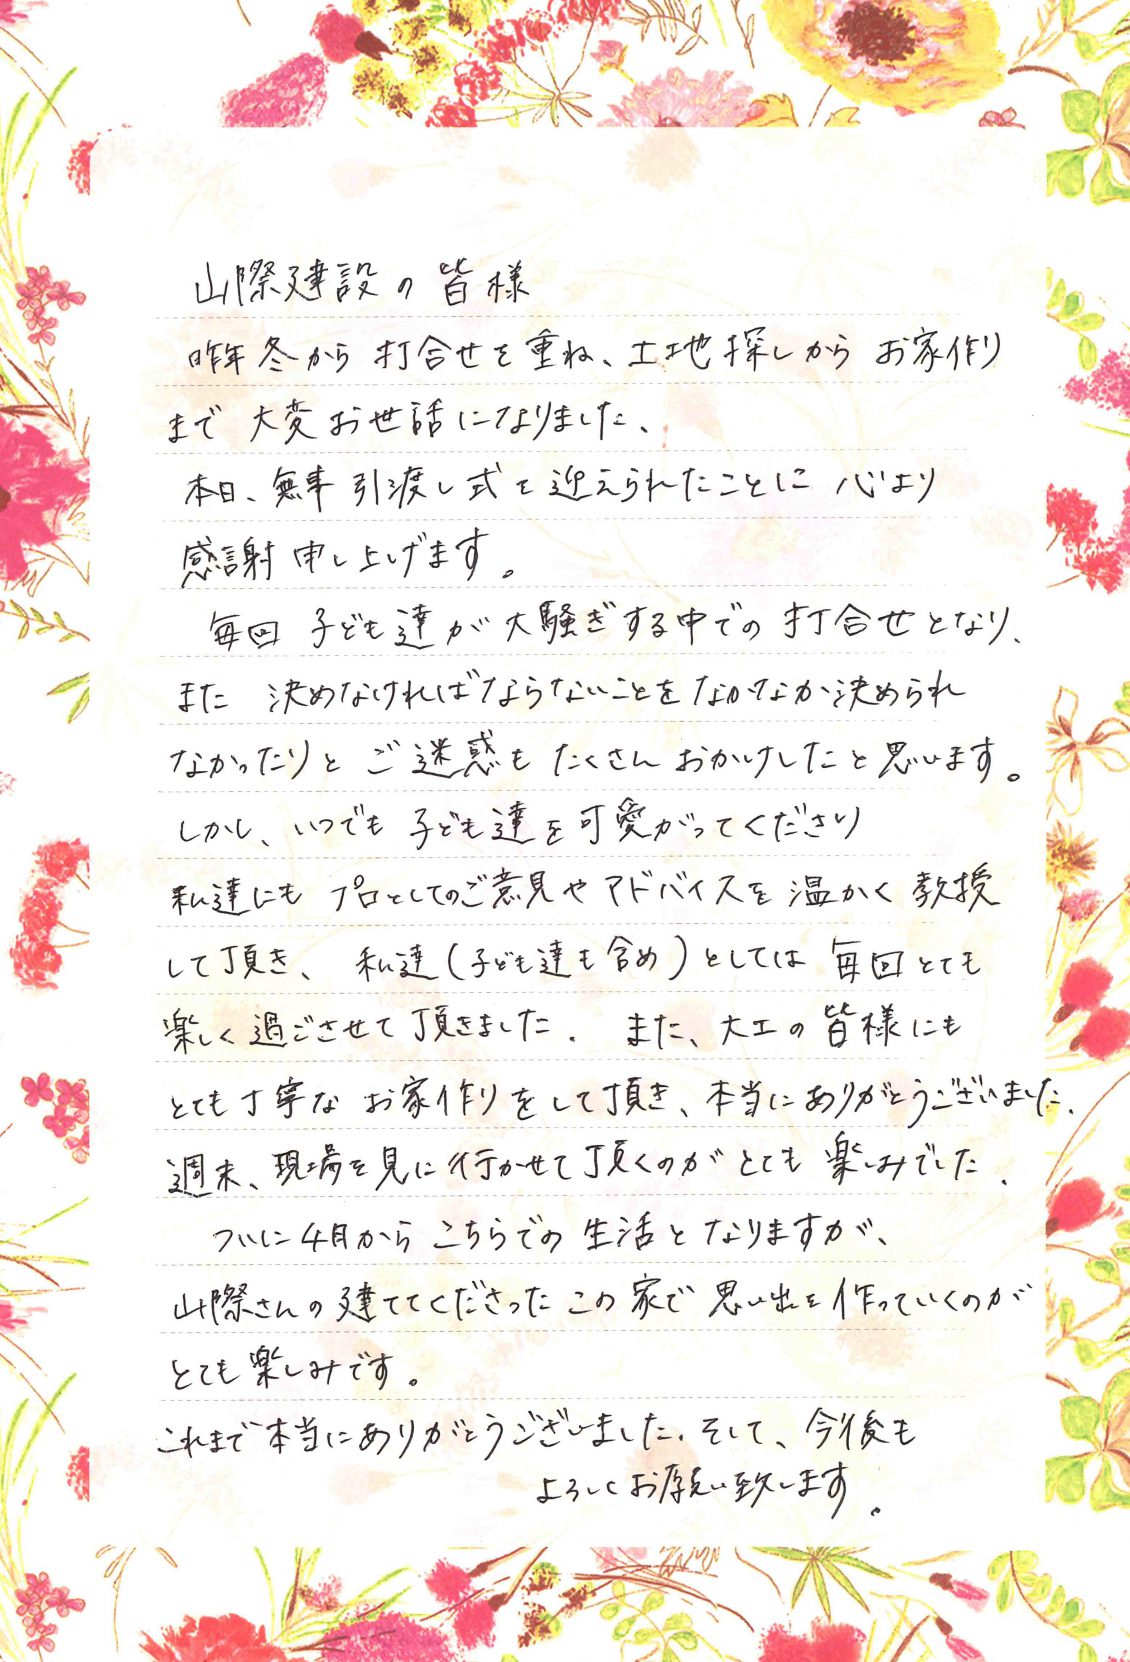 山際建設の皆様
昨年冬から打合せを重ね、土地探しからお家作り
まで大変お世話になりました、
本日、無事引渡し式を迎えられたことに心より
感謝申し上げます。
毎回子ども達が大騒ぎする中での打合せとなり、
また決めなければならないことをなかなか決められ
なかったりとご迷惑もたくさんおかけしたと思います。
しかし、いつでも子ども達を可愛がってくださり
私達にもプロとしてのご意見やアドバイスを温かく教授
して頂き、私達(子ども達も含め)としては毎回とても
楽しく過ごさせて頂きました. また、大工の皆様にも
とても丁寧なお家作りをして頂き、本当にありがとうございました.
週末、現場を見に行かせて頂くのがとても楽しみでした.
ついに4月からこちらでの生活となりますが、
山際さんの建ててくださったこの家で思い出を作っていくのが
とても楽しみです。
これまで本当にありがとうございました. そして、今後も
よろしくお願い致します.